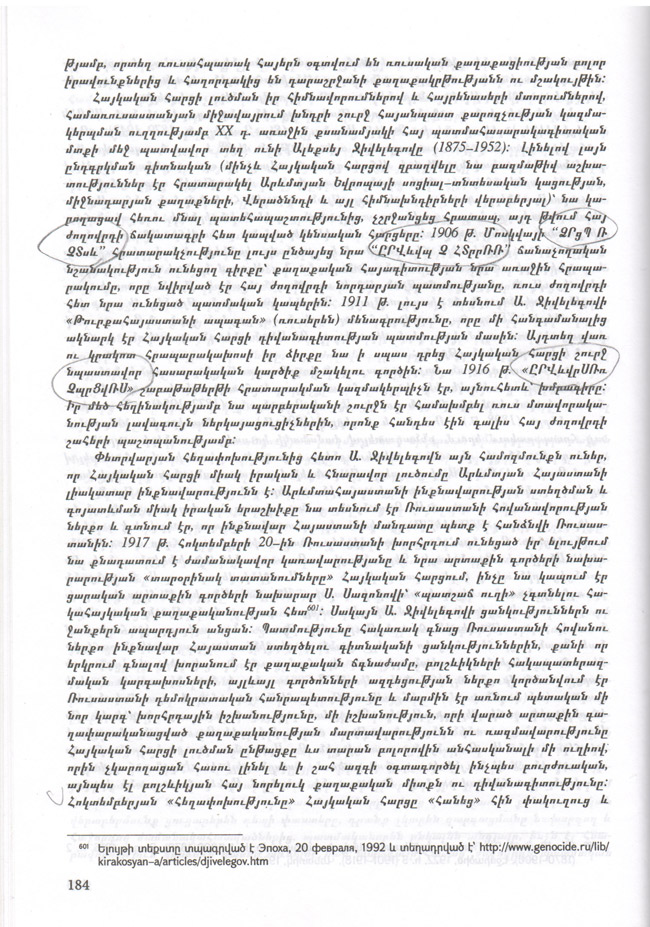 թյամբ, որտեղ ռուսահպատակ հայերն օգտվում են ռուսական քաղաքացիության բոլոր
իրավունքներից և հաղորդակից են դարաշրջանի քաղաքակրթությանն ու մշակույթին:
Հայկական Հարցի լուծման իր հիմնավորումներով և հայրենասերի մտորումներով,
համառուսաստանյան միջավայրում խնդրի շուրջ հայանպաստ քարոզչության կազմա-
կերպման ուղղությամբ XX դ. առաջին քսանամյակի հայ պատմահասարակագիտական
մտքի մեջ պատվավոր տեղ ունի Ալեքսեյ Ջիվելեգովը (1875–1952): Լինելով լայն
ընդգրկման գիտնական (մինչև Հայկական Հարցով զբաղվելը նա բազմաթիվ աշխա-
տություններ էր հրատարակել Արևմտյան Եվրոպայի սոցիալ–տնտեսական կացության,
միջնադարյան քաղաքների, Վերածննդի և այլ հիմնախնդիրների վերաբերյալ)՝ նա կա-
րողացավ հեռու մնալ պատեհապաշտությունից, չշրջանցեց հրատապ, այդ թվում հայ
ժողովրդի ճակատագրի հետ կապված կենսական հարցերը: 1906 թ. Մոսկվայի
հրատարակչությունը լույս ընծայեց նրա ճանաչողական
նշանակություն ունեցող գիրքը՝ քաղաքական հայագիտության նրա առաջին հրապա-
րակումը, որը նվիրված էր հայ ժողովրդի նորդարյան պատմությանը, ռուս ժողովրդի
հետ նրա ունեցած պատմական կապերին: 1911 թ. լույս է տեսնում Ա. Ջիվելեգովի
«Թուրքահայաստանի ապագան» (ռուսերեն) մենագրությունը, որը մի հանդամանալից
ակնարկ էր Հայկական հարցի դիվանագիտության պատմության մասին: Այդտեղ վառ
ու կրակոտ հրապարակախոսի իր ձիրքը նա ի սպաս դրեց Հայկական հարցի շուրջ
նպաստավոր հասարակական կարծիք մշակելու գործին: Նա 1916 թ.
շաբաթաթերթի հրատարակման կազմակերպիչն էր, այնուհետև՝ խմբագիրը:
Իր մեծ հեղինակությամբ նա պարբերականի շուրջն էր համախմբել ռուս մտավորակա-
նության լավագույն ներկայացուցիչներին, որոնք հանդես էին գալիս հայ ժողովրդի
շահերի պաշտպանությամբ:
Փետրվարյան հեղափոխությունից հետո Ա. Ջիվելեգովն այն համոզմունքն ուներ,
որ Հայկական Հարցի միակ իրական և հնարավոր լուծումը Արևմտյան Հայաստանի
լիակատար ինքնավարությունն է: Արևմտահայաստանի ինքնավարության ստեղծման և
գոյատևման միակ իրական երաշխիքը նա տեսնում էր Ռուսաստանի հովանավորության
ներքո և գտնում էր, որ ինքնավար Հայաստանի մանդատը պետք է հանձնվի Ռուսաս-
տանին: 1917 թ. հոկտեմբերի 20–ին Ռուսաստանի խորհրդում ունեցած իր ելույթում
նա քննադատում է ժամանակավոր կառավարությանը և նրա արտաքին գործերի նախա-
րարության «տարօրինակ տատանումները» Հայկական Հարցում, ինչը նա կապում էր
ցարական արտաքին գործերի նախարար Ս. Սազոնովի՝ «պատշաճ ուղի» չգտնելու հա-
կահայկական քաղաքականության հետ⁶⁰¹: Սակայն Ա. Ջիվելեգովի ցանկություններն ու
ջանքերն ապարդյուն անցան: Պատմությունը հակառակ գնաց Ռուսաստանի հովանու
ներքո ինքնավար Հայաստան ստեղծելու գիտնականի ցանկություններին, քանի որ
երկրում գնալով խորանում էր քաղաքական ճգնաժամը, բոլշևիկների հակապատերազ-
մական կարգախոսների, այլևայլ գործոնների ազդեցության ներքո կործանվում էր
Ռուսաստանի դեմոկրատական հանրապետությունը և մարմին էր առնում պետական մի
նոր կարգ՝ խորհրդային իշխանությունը, մի իշխանություն, որի վարած արտաքին գա-
ղափարականացված քաղաքականության մարտավարությունն ու ռազմավարությունը
Հայկական Հարցի լուծման ընթացքը ևս տարան բոլորովին անհասկանալի մի ուղիով,
որին չկարողացան հասու լինել և ի շահ ազգի օգտագործել ինչպես բուրժուական,
այնպես էլ բոլշևիկյան հայ նորելուկ քաղաքական միտքն ու դիվանագիտությունը:
Հոկտեմբերյան «հեղափոխությունը» Հայկական հարցը «հանեց» հին փակուղուց և
⁶⁰¹ Ելույթի տեքստը տպագրված է Эпоха, 20 февраля, 1992 և տեղադրված է՝ http://www.genocide.ru/lib/
kirakosyan–a/articles/djivelegov.htm
184